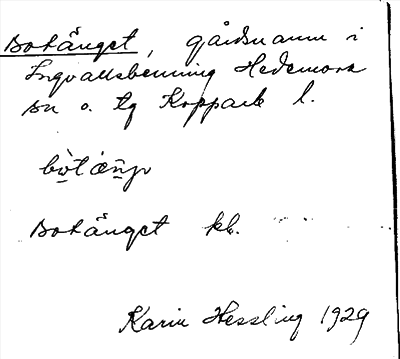 Botänget, gårdsnamn i
Ingvallsbenning Hedemora
sn o. tg Kopparb l.
bòtæŋ̀ə
Botänget kb.
Karin Hessling 1929